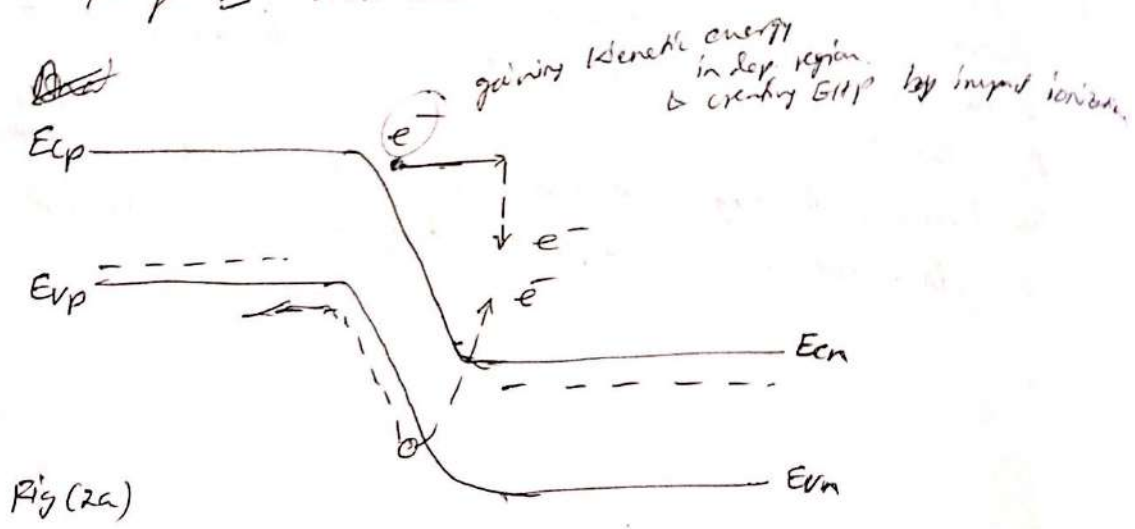 e⁻ gaining kienetic energy
in dep region.
& creating EHP by impact ionization
Ecp
e⁻
e⁻
Evp
Ecn
Evn
Fig (2a)